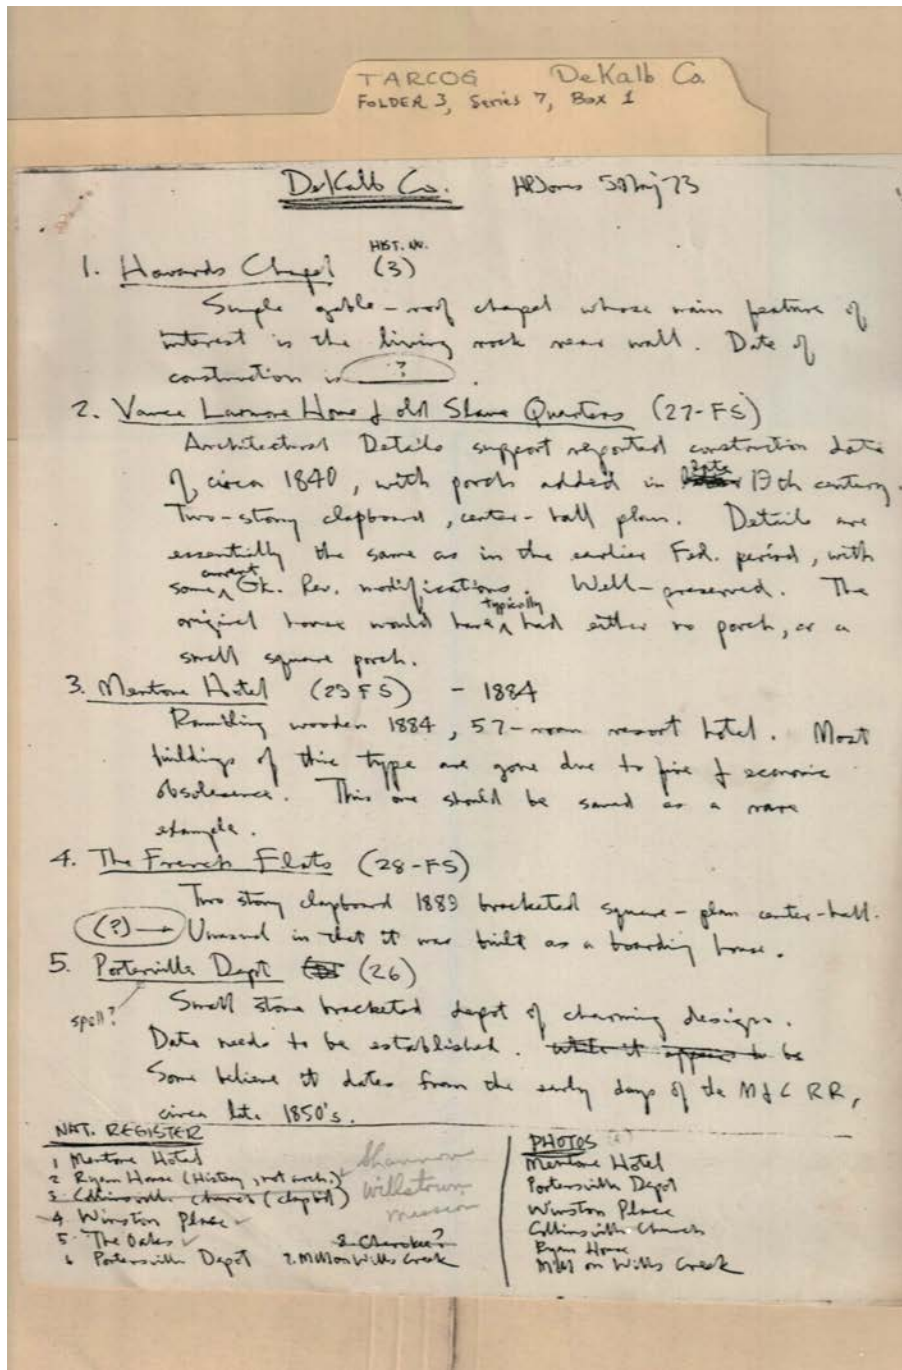 TARCOG DeKalb Co
FOLDER 3, Series 7, Box 1
DeKalb Co. HPJones 5 May 73
HIST. NO.
1. Howards Chapel (3)
Simple gable-roof chapel whose main feature of
interest is the living rock rear wall. Date of
construction is ? .
2. Vance Larmore Home & old Slave Quarters (27-FS)
Architectural Details support reported construction date
of circa 1840, with porch added in late 19th century.
Two-story clapboard, center-hall plan. Details are
essentially the same as in the earlier Fed. period, with
some current Gk. Rev. modifications. Well-preserved. The
original house would have typically had either no porch, or a
small square porch.
3. Mentone Hotel (23 FS) - 1884
Rambling wooden 1884, 57-room resort hotel. Most
buildings of this type are gone due to fire & economic
obsolesence. This one should be saved as a rare
example.
4. The French Flats (28-FS)
Two story clapboard 1889 bracketed square-plan center-hall.
(?) → Unusual in that it was built as a boarding house.
5. Porterville Depot (26)
spell?
Small stone bracketed depot of charming design.
Date needs to be established. while it appears to be
Some believe it dates from the early days of the M&C RR,
circa late 1850's.
NAT. REGISTER
1 Mentone Hotel
2 Ryan House (History, not arch.)
3 Collinsville Church (clapbd)
4 Winston Place
5 The Oaks
6 Portersville Depot
7. Mill on Wills Creek
8 Cherokee?
Shannon
Willstown
mission
PHOTOS
Mentone Hotel
Portersville Depot
Winston Place
Collinsville Church
Ryan House
Mill on Wills Creek